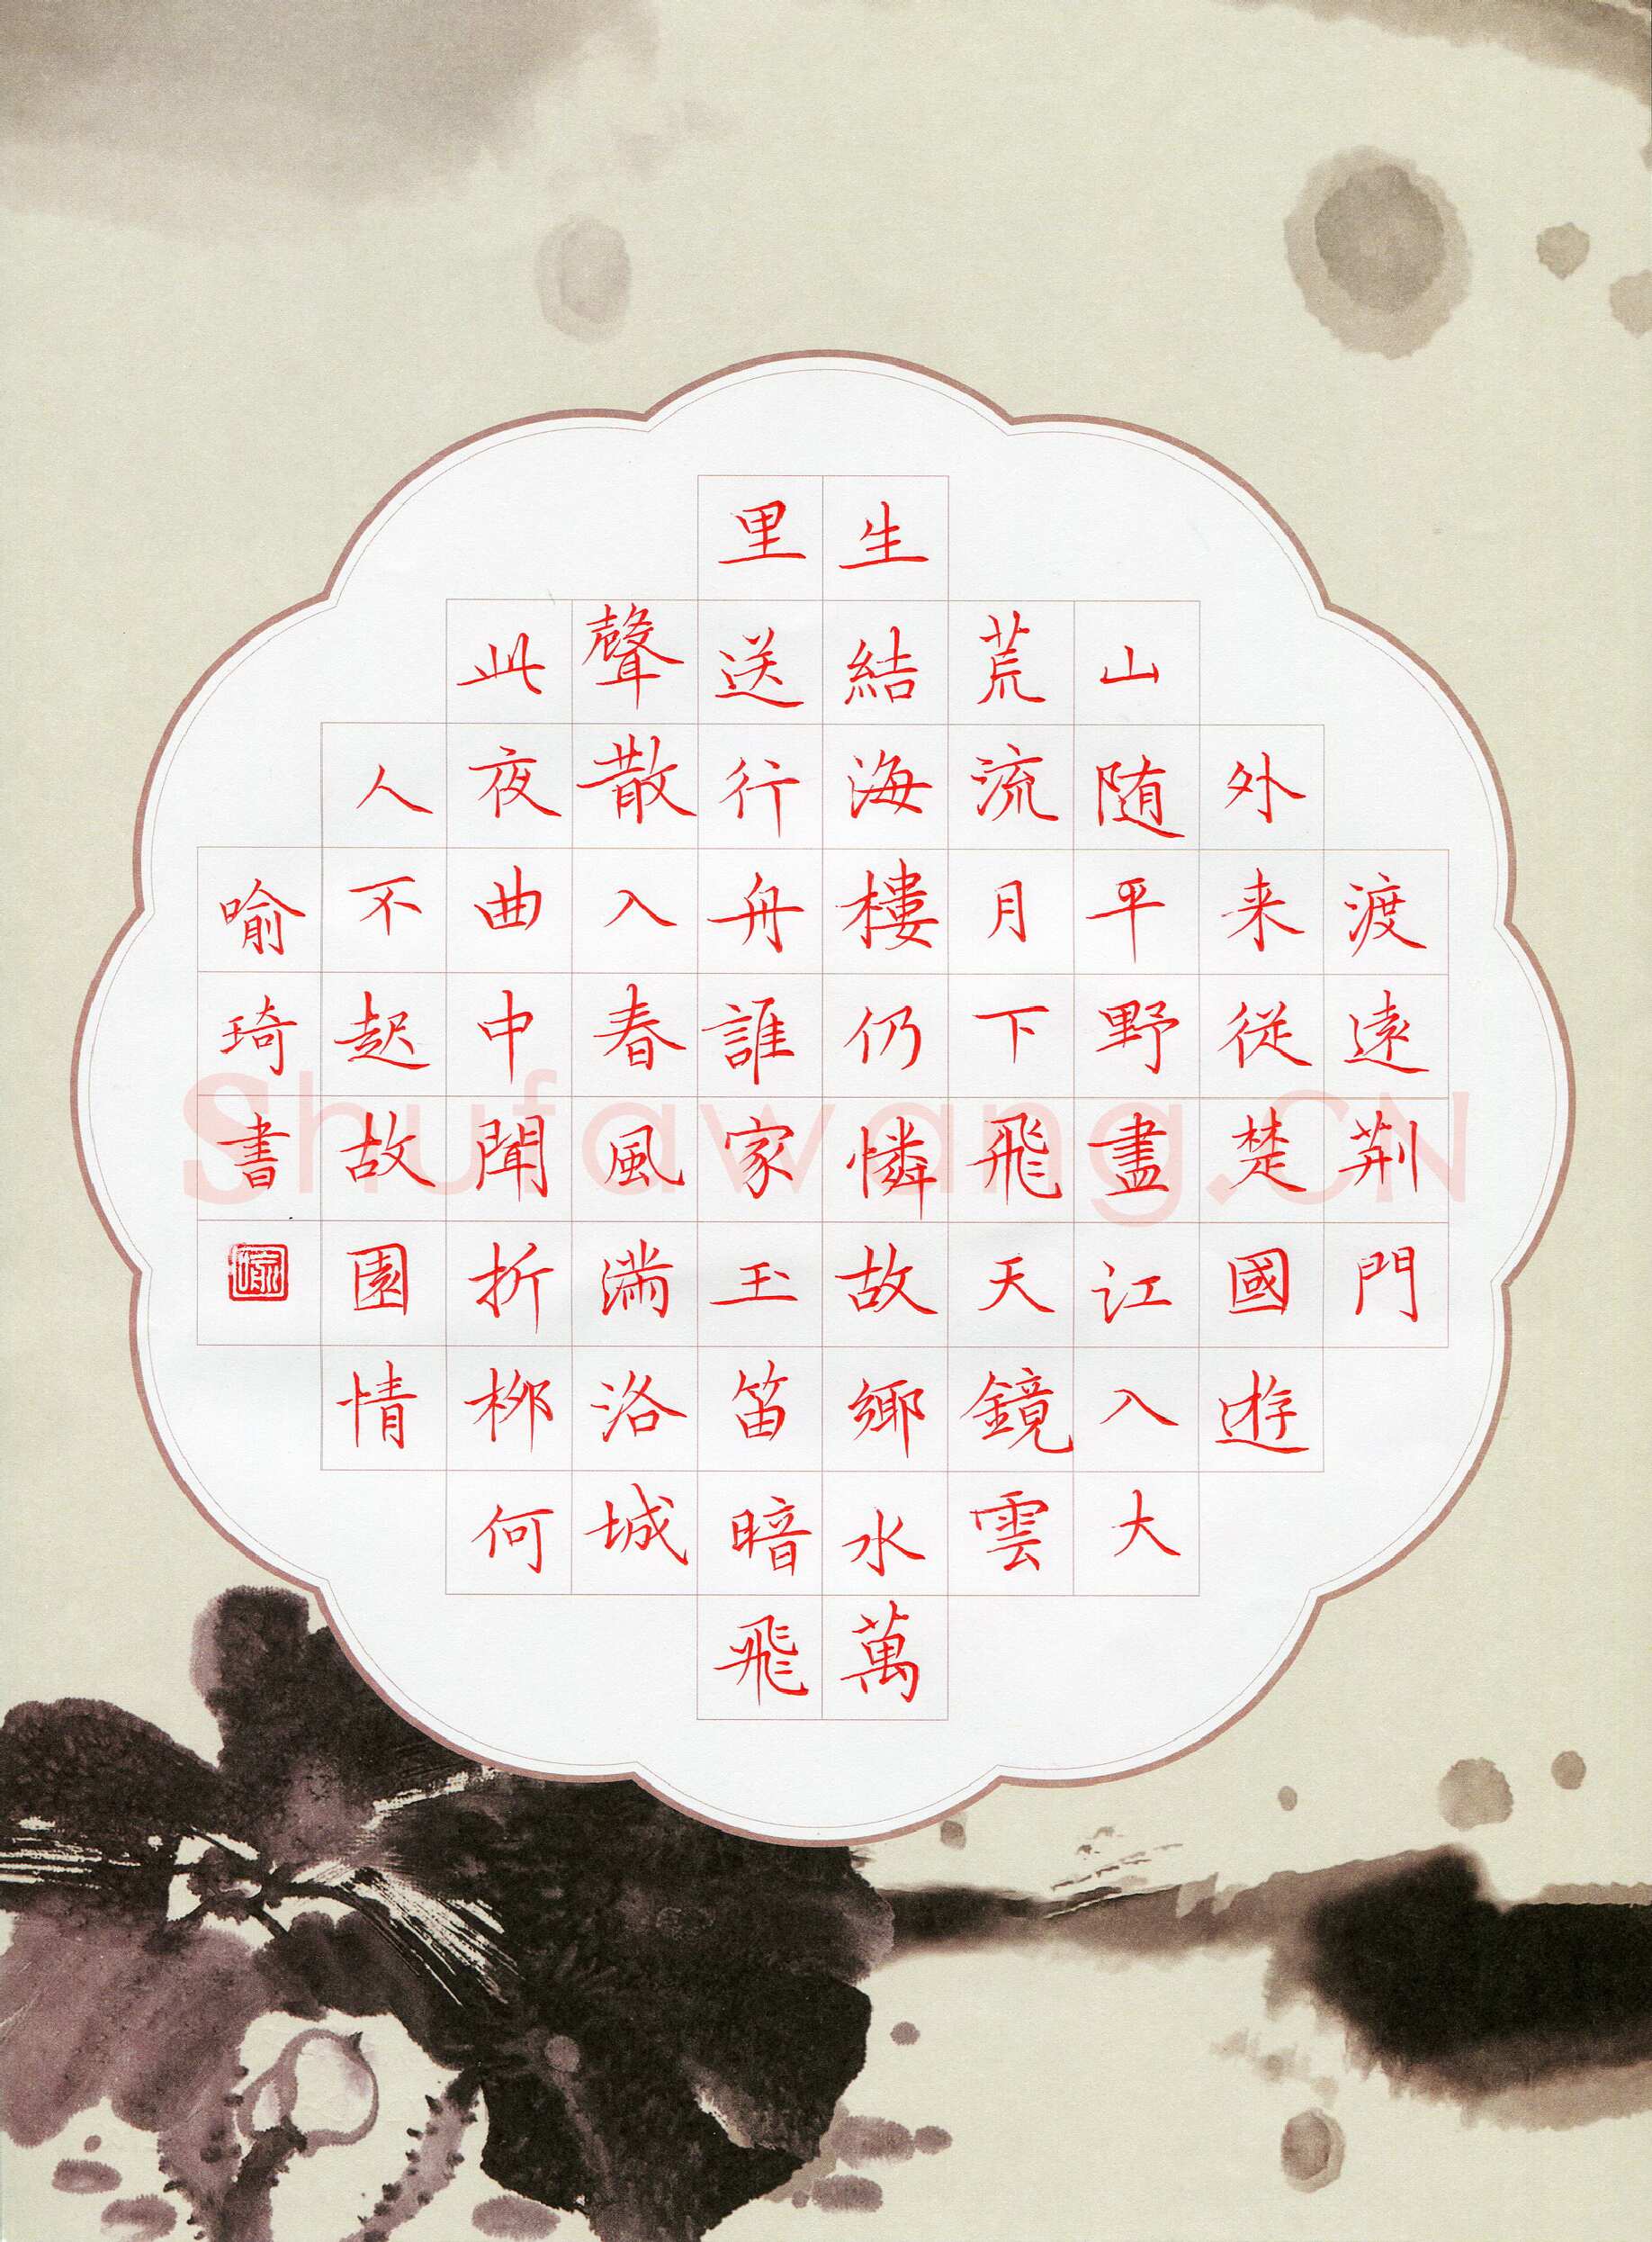 渡遠荆門
外来從楚國遊
山随平野盡江入大
荒流月下飛天鏡雲
生結海樓仍憐故鄉水萬
里送行舟誰家玉笛暗飛
聲散入春風滿洛城
此夜曲中聞折柳何
人不起故園情
喻琦書
喻
Shufawang.CN